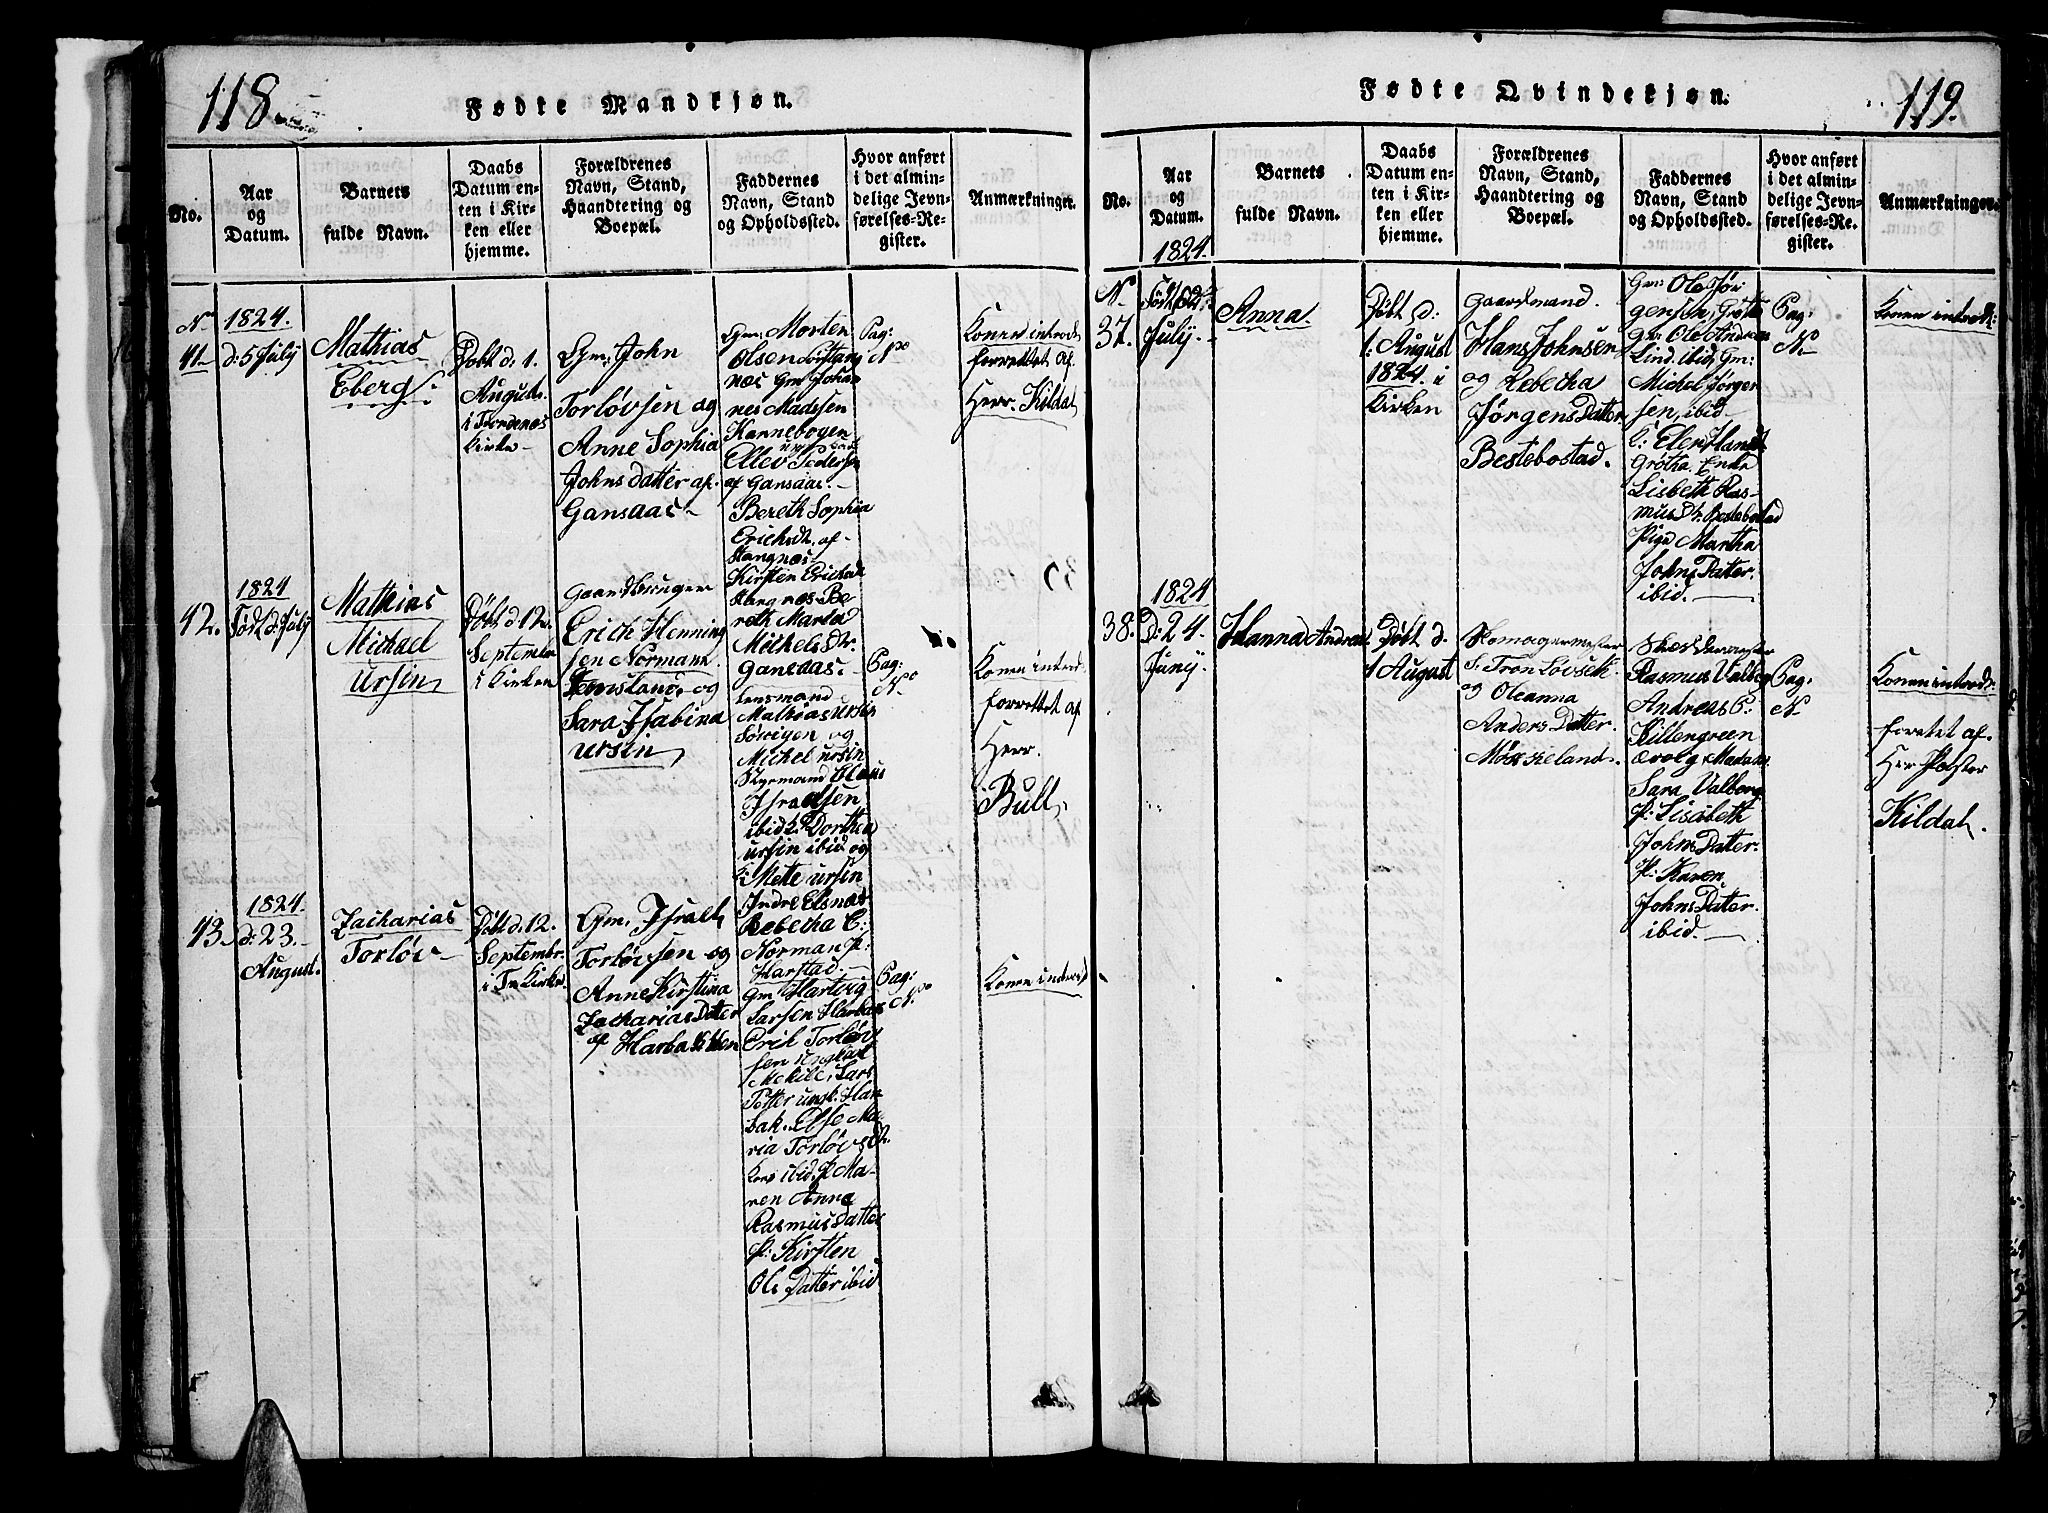 118
Fødte Mandkjøn.
No.
Aar
og
Datum.
Barnets
fulde Navn.
Daabs
Datum en-
ten i Kir-
ken eller
hjemme.
Forældrenes
Navn, Stand,
Haandtering og
Boepæl.
Faddernes
Navn, Stand
og Opholdssted.
Hvor anført
i det almin-
delige Jevn-
førelses-Re-
gister.
Anmærkninger.
No
41.
1824.
d: 5 July
Mathias
Eberg
Døbt d: 1.
August.
i Trondenæs
Kirke
Gm: John
Torløvsen og
Anne Sophia
Johnsdatter af
Gansaas
Gm: Morten
Olsen Stang
næs Gm Johan
nes Madssen
Kannebogen
Ellev Pedersen
af Gansaas.
Bereth Sophia
Erichsdr. af
Stangnæs
Kirsten Erichsd
Stangnæs Be
reth Marta
Michelsdr.
Gansaas
Pag:
No
Konen introd:
forrettet af
Herr. Kildal
42.
1824
Født d: July
Mathias
Michael
Ursin
Døbt d 12.
September
i Kirken
Gaardbruger
Erich Henning
sen Normann
og
Sara Isabina
Ursin
Lensmand
Mathias Ursin
Sørvigen og
Michel Ursin
Styrmand
Israelsen
ibid. Dorthea
Ursin ibid og
Mette Ursin
Indre Elsnæs
Rebecha C:
Norman
Harstad.
Pag:
No
Konen introd:
forrettet af
Herr.
Bull
43.
1824.
d: 23.
August.
Zacharias
Torløv
Døbt d. 12.
Septembr.
i Tr. Kirke
Gm. Israel
Torløvsen og
Anne Kirstina
Zacharias Datter
af Harbakken
Gm Hartvig
Larsen Harbak
Erich Torløv
sen ungkarl
Mekile, Lars
Petter ungk. Har
bak. Else Ma
ria Torløvsdr.
Kone ibid P Ma-
ren Anna
Rasmus Datter
P. Kirsten
Ols Datter ibid
Pag:
No
Konen introd
Fødte Qvindekjøn.
119.
No.
Aar
og
Datum.
Barnets
fulde Navn.
Daabs
Datum en-
ten i Kir-
ken eller
hjemme.
Forældrenes
Navn, Stand,
Haandtering og
Boepæl.
Faddernes
Navn, Stand
og Opholdssted.
Hvor anført
i det almin-
delige Jevn-
førelses-Re-
gister.
Anmærkninger.
1824.
N.
37.
July.
Anna
Døbt d:
1: August
1824. i
Kirken
Gaardmand.
Hans Johnsen
og Rebecha
Jørgens Datter
Bestebostad.
Gm: Ole Jør
gensen, Grøtha
Gm: Ole Andreas
Lind. ibid, Gm:
Michel Jørgen
sen, ibid
Grøtha. Enke
Lisbeth Ras-
mus Dr. Bestebostad
Pige Martha
Johns Datter.
ibid.
Pag:
No
Konen introd:
1824
38.
D: 24.
Juny.
Hanna Andrea
Døbt d.
1 August
Skomagermester
S: Tron Løvseth
og Oleanna
Anders Datter.
Skrædermester
Rasmus Valberg
Andreas C:
Killengreen
Madam
Sara Valberg
P: Lisabeth
Johns Datter.
P: Karen
Johns Datter
ibid.
Pag:
N
Konen introd:
forretet af.
Herr Præster
Kildal.